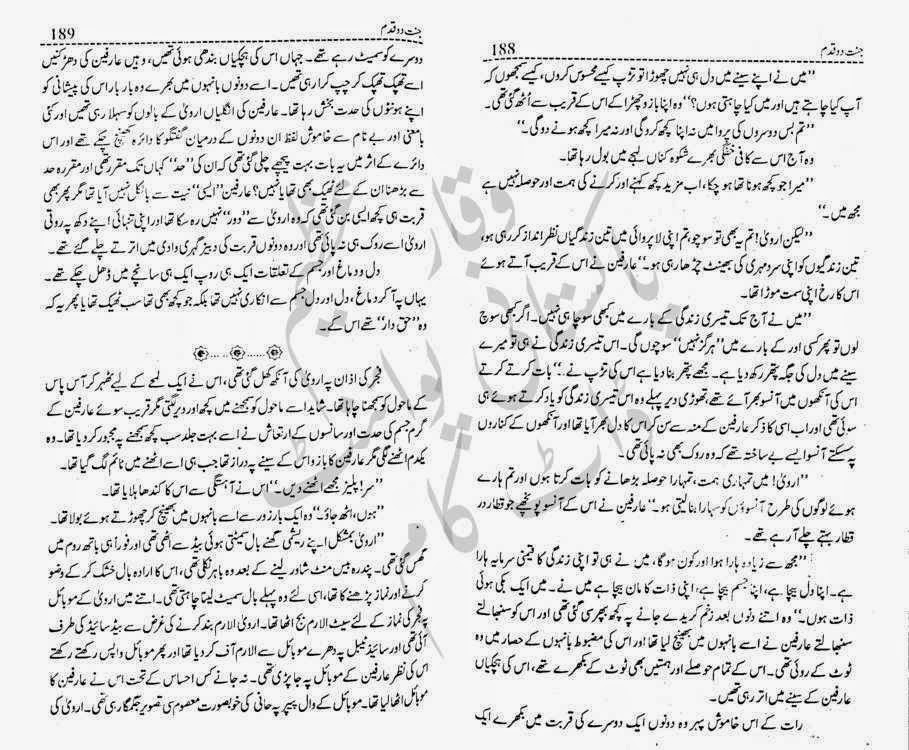 جنت دو قدم
188
”میں نے اپنے سینے میں دل ہی نہیں چھوڑا تو تڑپ کیسے محسوس کروں، کیسے سمجھوں کہ
آپ کیا چاہتے ہیں اور میں کیا چاہتی ہوں؟“ وہ اپنا بازو چھڑا کے اس کے قریب سے اُٹھ گئی تھی۔
”تم بس دوسروں کی پروا میں نہ اپنا کچھ کرو گی اور نہ میرا کچھ ہونے دو گی۔“
وہ آج اس سے کافی خفگی بھرے شکوہ کناں لہجے میں بول رہا تھا۔
”میرا جو کچھ ہونا تھا ہو چکا، اب مزید کچھ کہنے اور کرنے کی ہمت اور حوصلہ نہیں ہے
مجھ میں۔“
”لیکن ارویٰ! تم یہ بھی تو سوچو، تم اپنی لا پروائی میں تین زندگیاں نظر انداز کر رہی ہو،
تین زندگیوں کو اپنی سرد مہری کی بھینٹ چڑھا رہی ہو۔“ عارفین نے اس کے قریب آتے ہوئے
اس کا رخ اپنی سمت موڑا تھا۔
”میں نے آج تک تیسری زندگی کے بارے میں کبھی سوچا ہی نہیں۔ اگر کبھی سوچ
لوں تو پھر کسی اور کے بارے میں ”ہرگز نہیں“ سوچوں گی۔ اس تیسری زندگی نے ہی تو میرے
سینے میں دل کی جگہ پتھر رکھ دیا ہے۔ مجھے پتھر بنا دیا ہے اس کی تڑپ نے۔“ بات کرتے کرتے
اس کی آنکھوں میں آنسو بھر آئے تھے، تھوڑی دیر پہلے وہ اس تیسری زندگی کو یاد کرتے ہوئے ہی
سوئی تھی اور اب اسی کا ذکر عارفین کے منہ سے سن کر اس کا دل بھر آیا تھا اور آنکھوں کے کناروں
پہ سسکتے آنسو ایسے بے ساختہ تھے کہ وہ روک بھی نہ پائی تھی۔
”ارویٰ! میں تمہاری ہمت، تمہارا حوصلہ بڑھانے کو بات کرتا ہوں اور تم ہارے
ہوئے لوگوں کی طرح آنسوؤں کو سہارا بنا لیتی ہو۔“ عارفین نے اس کے آنسو پونچھے جو قطار در
قطار بہتے چلے آ رہے تھے۔
”مجھ سے زیادہ ہارا ہوا اور کون ہو گا، میں نے ہی تو اپنی زندگی کا قیمتی سرمایہ ہارا
ہے۔ اپنا دل بیچا ہے، اپنا جسم بیچا ہے، اپنی ذات کا مان بیچا ہے میں نے۔ میں ایک بکی ہوئی
ذات ہوں۔“ وہ اتنے دنوں بعد زخم کریدے جانے پہ کچھ بھر سی گئی تھی اور اس کو سنبھالتے
سنبھالتے عارفین نے اسے بانہوں میں بھینچ لیا تھا اور اس کی مضبوط بانہوں کے حصار میں وہ
ٹوٹ کے روئی تھی۔ اس کے تمام حوصلے اور ہمتیں بھی ٹوٹ کے بکھرے تھے، اس کی ہچکیاں
عارفین کے سینے میں اتر رہی تھیں۔
رات کے اس خاموش پہر وہ دونوں ایک دوسرے کی قربت میں بکھرے ایک
جنت دو قدم
189
دوسرے کو سمیٹ رہے تھے۔ جہاں اس کی ہچکیاں بندھی ہوئی تھیں، وہیں عارفین کی دھڑکنیں
اسے تھپک تھپک کر چپ کرا رہی تھیں۔ اسے دونوں بانہوں میں بھرے وہ بار بار اس کی پیشانی کو
اپنے ہونٹوں کی حدت بخش رہا تھا۔ عارفین کی انگلیاں ارویٰ کے بالوں کو سہلا رہی تھیں اور کئی
بامعنی اور بے نام سے خاموش لفظ ان دونوں کے درمیان گفتگو کا دائرہ کھینچ چکے تھے اور اس
دائرے کے اثر میں یہ بات بہت پیچھے چلی گئی تھی کہ ان کی ”حد“ کہاں تک مقرر تھی اور مقررہ حد
سے بڑھنا ان کے لئے ٹھیک بھی تھا یا نہیں؟ عارفین ”ایسی“ نیت سے بالکل نہیں آیا تھا مگر پھر بھی
قربت ہی کچھ ایسی بن گئی تھی کہ وہ ارویٰ سے ”دور“ نہیں رہ سکا تھا اور اپنی تنہائی اپنے دکھ پہ روتی
ارویٰ اسے روک ہی نہ پائی تھی اور وہ دونوں قربت کی دبیز گہری وادی میں اترتے چلے گئے تھے۔
دل و دماغ اور جسم کے تعلقات ایک ہی روپ ایک ہی سانچے میں ڈھل چکے تھے۔
یہاں پہ آ کر دماغ، دل اور دل جسم سے انکاری نہیں تھا بلکہ جو کچھ بھی تھا سب ٹھیک تھا یا پھر یہ کہ
وہ ”حق دار“ تھے اس کے۔
فجر کی اذان پہ ارویٰ کی آنکھ کھل گئی تھی، اس نے ایک لمحے کے لیے ٹھہر کر آس پاس
کے ماحول کو سمجھنا چاہا تھا۔ شاید اسے ماحول کو سمجھنے میں کچھ اور دیر لگتی مگر قریب سوئے عارفین کے
گرم جسم کی حدت اور سانسوں کے ارتعاش نے اسے بہت جلد سب کچھ سمجھنے پہ مجبور کر دیا تھا۔ وہ
یکدم اٹھنے لگی مگر عارفین کا بازو اس کے سینے پہ دراز تھا جب ہی اسے اٹھنے میں ٹائم لگ گیا تھا۔
”سر! پلیز مجھے اٹھنے دیں۔“ اس نے آہستگی سے اس کا کندھا ہلایا تھا۔
”ہوں، اٹھ جاؤ۔“ وہ ایک بار زور سے اسے بانہوں میں بھینچ کر چھوڑتے ہوئے بولا تھا۔
”ارویٰ بمشکل اپنے ریشمی گھنے بال سمیٹتی ہوئی بیڈ سے اٹھی تھی اور فوراً ہی باتھ روم میں
گھس گئی تھی۔ پندرہ بیس منٹ شاور لینے کے بعد وہ باہر نکلی تھی، اس کا ارادہ بال خشک کر کے وضو
کرنے اور نماز پڑھنے کا تھا، اسی لئے وہ پہلے بال سمیٹ لینا چاہتی تھی۔ اتنے میں ارویٰ کے موبائل
پہ فجر کی نماز کے لئے سیٹ الارم بج اٹھا تھا۔ ارویٰ الارم بند کرنے کی غرض سے بیڈ سائیڈ کی طرف
آئی تھی اور سائیڈ ٹیبل پہ دھرے موبائل سے الارم آف کر دیا تھا اور پھر موبائل واپس رکھتے رکھتے
اس کی نظر عارفین کے موبائل پہ جا پڑی تھی۔ نہ جانے کس احساس کے تحت اس نے عارفین کا
موبائل اٹھا لیا تھا۔ موبائل کے وال پیپر پہ ہانی کی خوبصورت معصوم سی تصویر جگمگا رہی تھی۔ ارویٰ کی